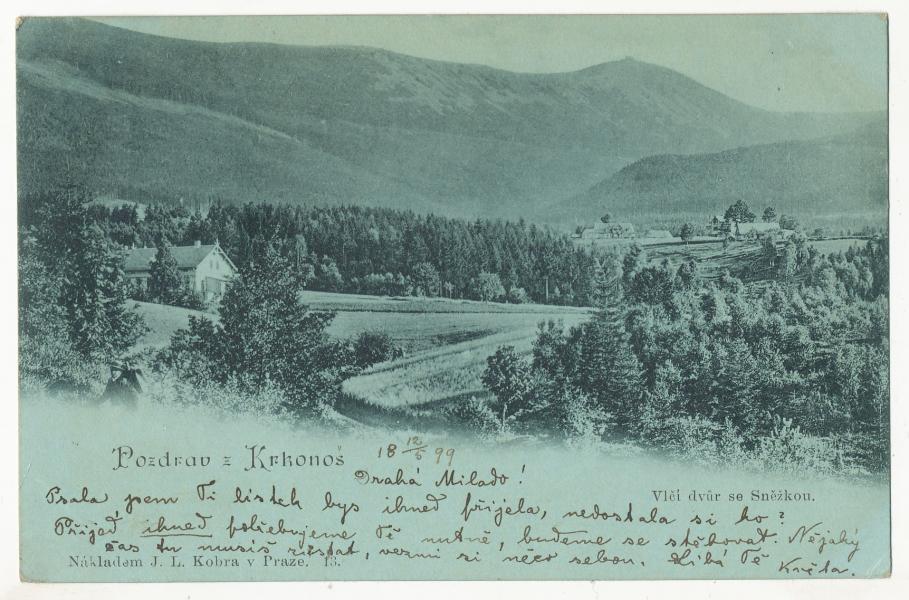 Pozdrav z Krkonoš
18 12/5 99
Drahá Milado!
Vlčí dvůr se Sněžkou.
Psala jsem Ti lístek bys ihned přijela, nedostala si ho?
Přijeď ihned potřebujeme Tě nutně, budeme se stěhovat. Nějaký
čas tu musíš zůstat, vezmi si něco sebou. Líbá Tě Květa.
Nákladem J. L. Kobra v Praze. 13.